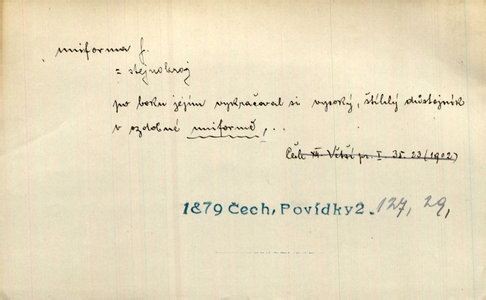 uniforma f.
= stejnokroj
po boku jejím vykračoval si vysoký, štíhlý důstojník
v ozdobné uniformě, . .
Čch Větší pr. I 35. 23 (1902)
1879 Čech, Povídky 2. 127, 29,